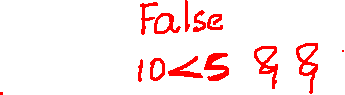 False
10<5 & &